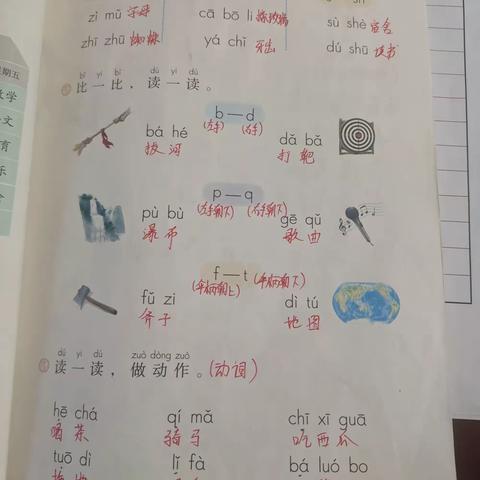 zì mǔ 字母 cā bō li 擦玻璃 sù shè 宿舍
zhī zhū 蜘蛛 yá chǐ 牙齿 dú shū 读书
期五
数学
文
育
乐
bǐ yi bǐ dú yi dú
比一比，读一读。
b—d
(左手) (右手)
bá hé dǎ bǎ
拔河 打靶
p—q
(左手朝下) (右手朝下)
pù bù gē qǔ
瀑布 歌曲
f—t
(伞柄朝上) (伞柄朝下)
fǔ zi dì tú
斧子 地图
dú yi dú zuò dòng zuò
读一读，做动作。(动词)
hē chá qí mǎ chī xī guā
喝茶 骑马 吃西瓜
tuō dì lǐ fà bá luó bo